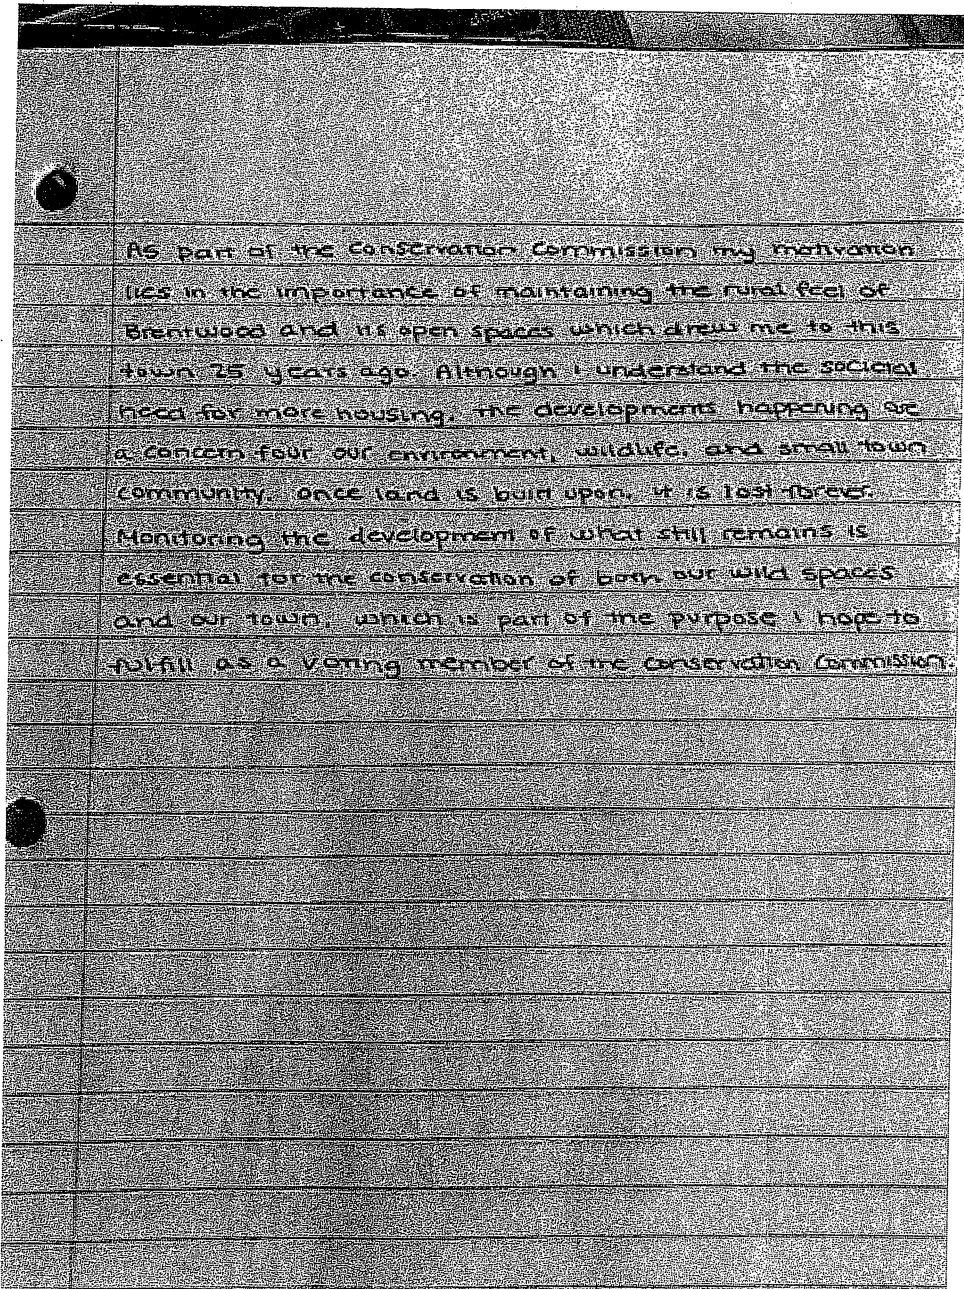 As part of the Conservation Commission my motivation
lies in the importance of maintaining the rural feel of
Brentwood and its open spaces which drew me to this
town 25 years ago. Although I understand the societal
need for more housing, the developments happening are
a concern four our environment, wildlife, and small town
community. Once land is built upon, it is lost forever.
Monitoring the development of what still remains is
essential for the conservation of both our wild spaces
and our town, which is part of the purpose I hope to
fulfill as a voting member of the Conservation Commission.